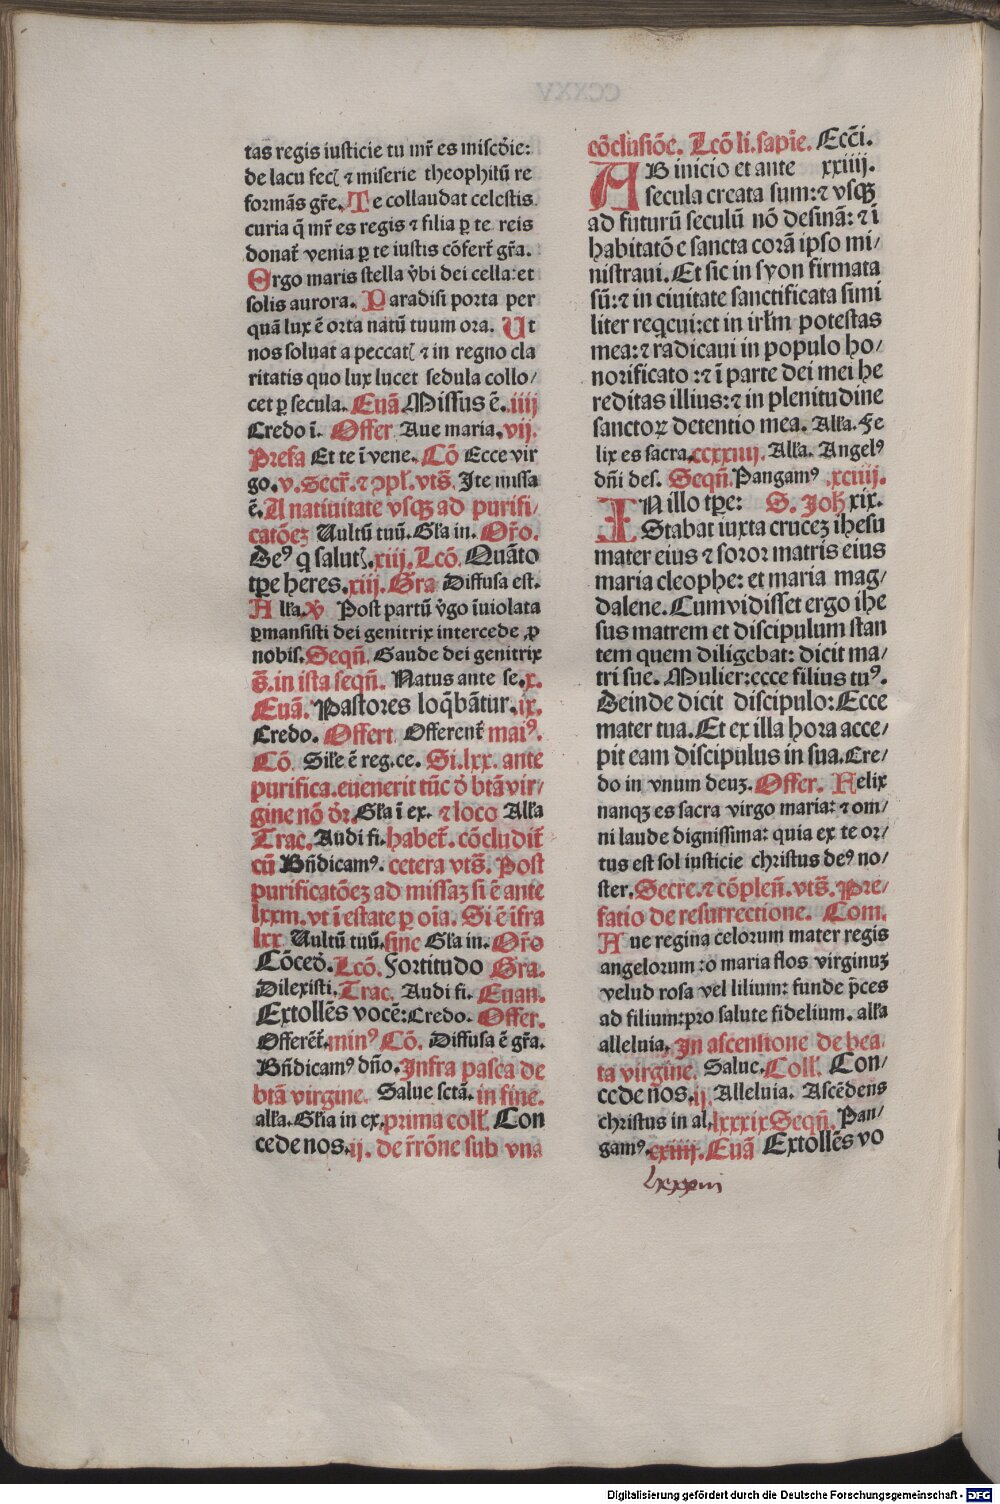 tas̄ regis iusticie tu mr̄ es misc̄die:
de lacu fecꝭ ⁊ miserie theophitū re
formās gr̄e. Te collaudat celestis
curia q̄ mr̄ es regis ⁊ filia ꝑ te reis
donat̄ venia ꝑ te iustis cōfert̄ gr̄a.
Ergo maris stella v̄bi dei cella: et
solis aurora. Paradisi porta per
quā lux ē orta natū tuum ora. Ut
nos soluat a peccatꝭ ⁊ in regno cla
ritatis quo lux lucet sedula collo/
cet ꝑ secula. Euā Missus ē. iiij
Credo ī. Offer Aue maria. vij.
Prefa Et te ī vene. Cō Ecce vir
go. v. Secr̄. ⁊ ꝯpl̄. vts̄. Ite missa
ē. A natiuitate vsqꝫ ad purifi/
catōeꝫ Uultū tuū. Gl̄a in. Or̄o.
Deꝰ q̄ salutꝭ. xiij. Lcō. Quāto
tꝑe heres. xiij. Gra Diffusa est.
All̄a. v̄ Post partū v̄go īuiolata
ꝑmansisti dei genitrix intercede ꝓ
nobis. Seqn̄. Gaude dei genitrix
s̄. in ista seqn̄. Natus ante se. x.
Euā. Pastores loqb̄antur. ix.
Credo. Offert Offerent̄ maiꝰ.
Cō. Sil̄e ē reg. ce. Si. lxx. ante
purifica. euenerit tūc d̄ btā vir/
gine nō dr̄. Gl̄a ī ex. ⁊ loco All̄a
Trac. Audi fi. habet̄. cōcludit̄
cū Bn̄dicamꝰ. cetera vts̄. Post
purificatōeꝫ ad missaꝫ si ē ante
lxxm. vt ī estate ꝑ oīa. Si ē īfra
lxx Uultū tuū. sine Gl̄a in. Or̄o
Cōced̄. Lcō. Fortitudo Gra.
Dilexisti. Trac. Audi fi. Euan.
Extollēs vocē: Credo. Offer.
Offerēt̄. minꝰ Cō. Diffusa ē gr̄a.
Bn̄dicamꝰ dn̄o. Infra pasca de
btā virgine. Salue sctā. in fine.
all̄a. Gl̄ia in ex. prima coll̄. Con
cede nos. ij. de r̄rōne sub vna
cōclusiōe. Lcō li. sapīe. Ecc̄i.
AB inicio et ante xxiiij.
secula creata sum: ⁊ vsqꝫ
ad futurū seculū nō desinā: ⁊ ī
habitatōe sancta corā ipso mi/
nistraui. Et sic in syon firmata
sū: ⁊ in ciuitate sanctificata simi
liter req̄eui: et in irl̄m potestas
mea: ⁊ radicaui in populo ho/
norificato: ⁊ ī parte dei mei he
reditas illius: ⁊ in plenitudine
sanctoꝝ detentio mea. All̄a. Fe
lix es sacra. ccxxiiij. All̄a. Angelꝰ
dn̄i des. Seqn̄. Pangamꝰ .xciiij.
IN illo tꝑe: S. Joh xix.
Stabat iuxta cruceꝫ ihesu
mater eius ⁊ soror matris eius
maria cleophe: et maria mag/
dalene. Cum vidisset ergo ihe
sus matrem et discipulum stan
tem quem diligebat: dicit ma/
tri sue. Mulier: ecce filius tuꝰ.
Deinde dicit discipulo: Ecce
mater tua. Et ex illa hora acce/
pit eam discipulus in sua. Cre/
do in vnum deuꝫ. Offer. Felix
nanqꝫ es sacra virgo maria: ⁊ om/
ni laude dignissima: quia ex te or/
tus est sol iusticie christus deꝰ no/
ster. Secre. ⁊ cōplen̄. vts̄. Pre/
fatio de resurrectione. Com.
Aue regina celorum mater regis
angelorum: o maria flos virginuꝫ
velud rosa vel lilium: funde p̄ces
ad filium: pro salute fidelium. all̄a
alleluia. In ascensione de bea/
ta virgine. Salue. Coll̄. Con/
cede nos. ij. Alleluia. Ascēdens
christus in al. lxxxix Seqn̄. Pan/
gamꝰ. cxiiij. Euā Extollēs vo
lxxxiiii
Digitalisierung gefördert durch die Deutsche Forschungsgemeinschaft - DFG